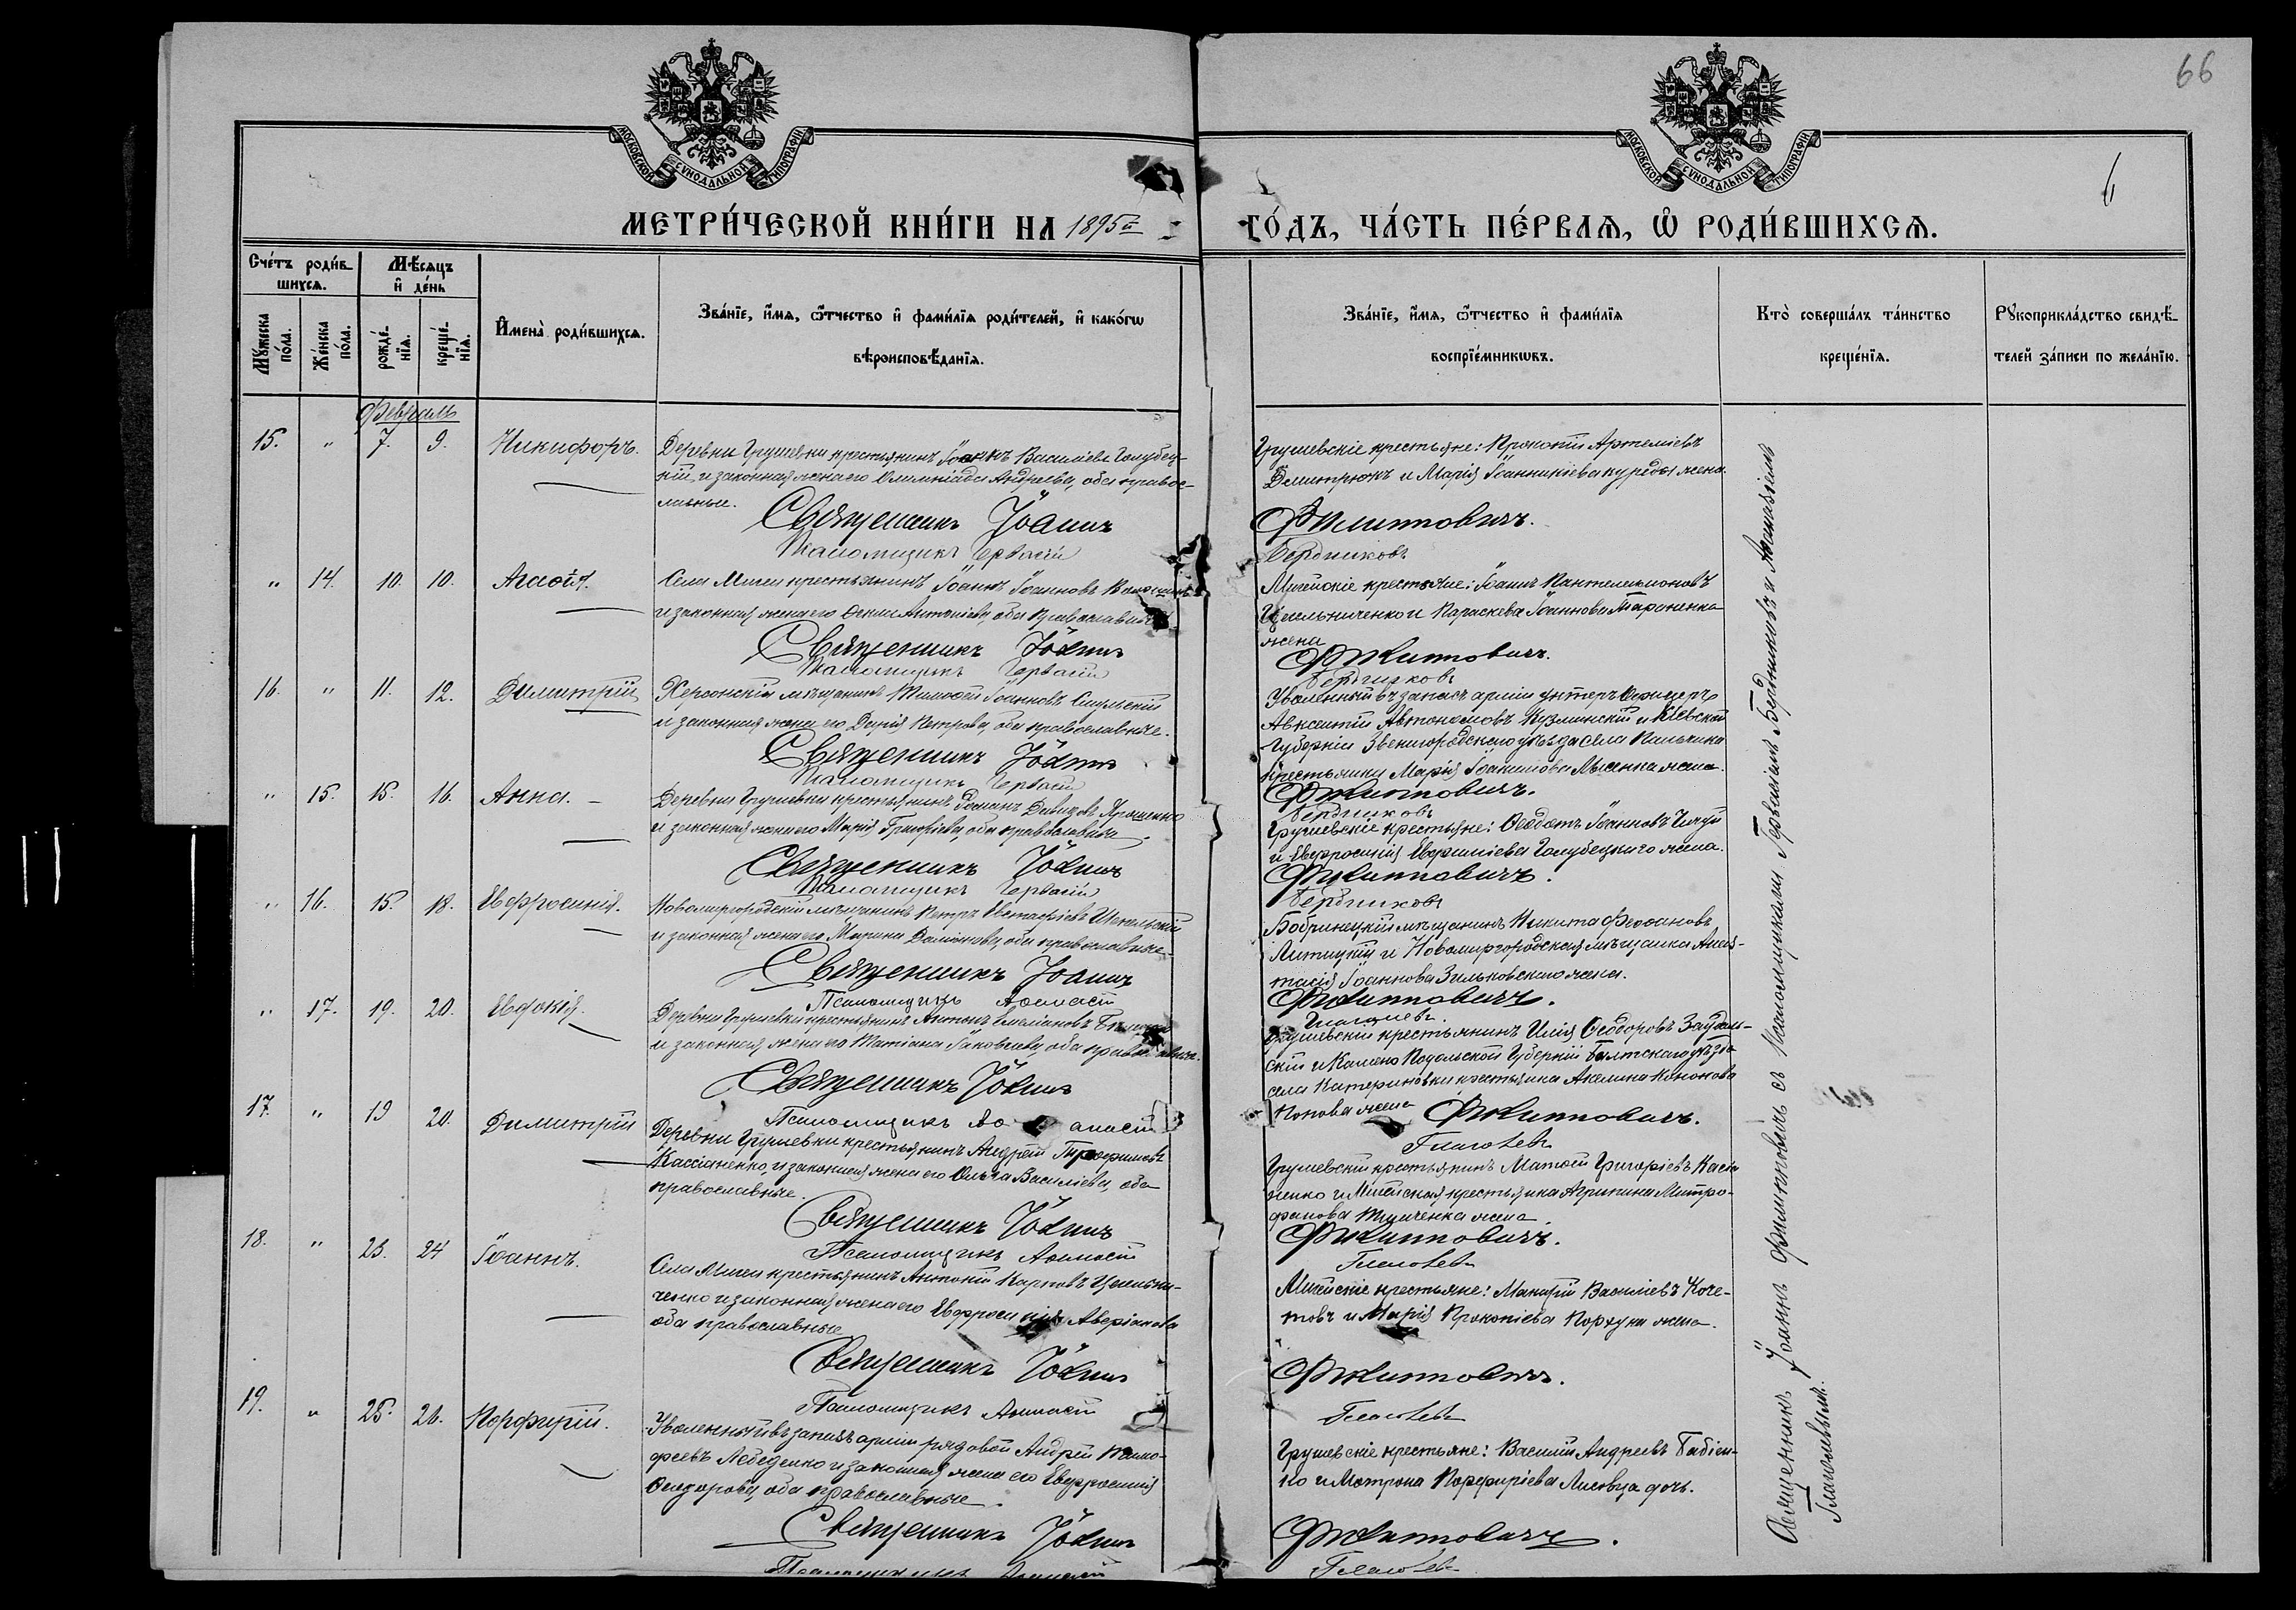 66
МОСКОВСКОЙ СѴНОДАЛЬНОЙ ТИПОГРАФІИ
МОСКОВСКОЙ СѴНОДАЛЬНОЙ ТИПОГРАФІИ
МЕТРИ́ЧЕСКОЙ КНИ́ГИ НА 1895й ГО́ДЪ, ЧА́СТЬ ПЕ́РВАѦ, Ѡ РОДИ́ВШИХСѦ.
Сче́тъ роди́вшихсѧ.
Мꙋ́жеска по́ла.
Же́нска по́ла.
Мѣ́сѧцъ и де́нь
рожде́нїѧ.
креще́нїѧ.
Имена̀ роди́вшихсѧ.
Зва́нїе, и́мѧ, ѻ҆́тчество и фами́лїѧ роди́телей, и како́гѡ
вѣроисповѣ́данїѧ.
Зва́нїе, и́мѧ, ѻ҆́тчество и фами́лїѧ
воспрїе́мникѡвъ.
Кто̀ соверша́лъ та́инство
креще́нїѧ.
Рꙋкоприкла́дство свидѣ́телей за́писи по жела́нїю.
Февраль
15. " 7. 9. Никифоръ.
Деревни Грушевки крестьянинъ Іоаннъ Василіевъ Голубец-
кій, и законная жена его Олимпіада Андреева, оба правос-
лавные.
Священникъ Іоаннъ
Псаломщикъ Гервасій
Грушевскіе крестьяне: Прокопій Артеміевъ
Димитрюкъ и Марія Іоанникіева Куреды жена.
Филипповичъ.
Бердниковъ
" 14. 10. 10. Агаѳія.
Села Мигеи крестьянинъ Іоаннъ Іоанновъ
и законная жена его Антоніева, оба православные
Священникъ Іоаннъ
Псаломщикъ Гервасій
Мигейскіе крестьяне: Іоаннъ Пантелеимоновъ
Цегельниченко и Параскева Іоаннова Тараненка
жена
Филипповичъ.
Бердниковъ
16. " 11. 12. Димитрій
Херсонскій мѣщанинъ Тимоѳей Іоанновъ
и законная жена его Дарія Петрова, оба православные.
Священникъ Іоаннъ
Псаломщикъ Гервасій
Уволенный въ запасъ арміи унтеръ Офицеръ
Авксентій Автономовъ Кузминскій и Кіевской
Губерніи Звенигородскаго уѣзда села
крестьянки Марія жена.
Филипповичъ.
Бердниковъ
" 15. 15. 16. Анна.
Деревни Грушевки крестьянинъ Романъ Давидовъ Ярошенко
и законная жена его Марія оба православные.
Священникъ Іоаннъ
Псаломщикъ Гервасій
Грушевскіе крестьяне: Ѳеодотъ Іоанновъ
и Евфросинія Евфиміева Голубецкаго жена.
Филипповичъ.
Бердниковъ
" 16. 15. 18. Евфросинія.
Новомиргородскій мѣщанинъ Петръ Евстафіевъ
и законная жена его Марина оба православные.
Священникъ Іоаннъ
Псаломщикъ Аѳанасій
Бобринецкій мѣщанинъ Никита Ѳеофановъ
и Новомиргородская мѣщанка Анас-
тасія Іоаннова Зильковскаго жена.
Филипповичъ.
Глаголевъ.
" 17. 19. 20. Евдокія.
Деревни Грушевки крестьянинъ Антонъ Емеліановъ
и законная жена его Татіана Іаковлева, оба православные.
Священникъ Іоаннъ
Псаломщикъ Аѳанасій
Грушевскій крестьянинъ Илія Ѳеодоровъ
и Камено Подольской Губерніи Балтскаго уѣзда
села Катериновки крестьянка Акелина Кононова
Попова жена
Филипповичъ.
Глаголевъ
17. " 19 20. Димитрій
Деревни Грушевки крестьянинъ Андрей Трофимовъ
Кассіаненко, и законная жена его Ольга Василіева, оба
православные.
Священникъ Іоаннъ
Псаломщикъ Аѳанасій
Грушевскій крестьянинъ Матѳей Григоріевъ Касія-
ненко и Мигейская крестьянка Агрипина Митро-
фанова жена.
Филипповичъ.
Глаголевъ
18. " 23. 24 Іоаннъ.
Села Мигеи крестьянинъ Антоній Карповъ Цегельни-
ченко и законная жена его Евфросинія Аверіанова
оба православные
Священникъ Іоаннъ
Псаломщикъ Аѳанасій
Мигейскіе крестьяне: Макарій Василіевъ Коче-
товъ и Марія Прокопіева Порхуна жена.
Филипповичъ.
Глаголевъ
19. " 25. 26. Порфирій.
Уволенный въ запасъ арміи рядовой Андрей
Лебеденко и законная жена его Евфросинія
Ѳеодорова, оба православные.
Священникъ Іоаннъ
Псаломщикъ Аѳанасій
Грушевскіе крестьяне: Василій Андреевъ Бабіен-
ко и Матрона Порфиріева Лисовца дочь.
Филипповичъ.
Глаголевъ
Священникъ Іоаннъ Филипповичъ съ псаломщиками Гервасіемъ Бердниковымъ и Аѳанасіемъ
Глаголевымъ.